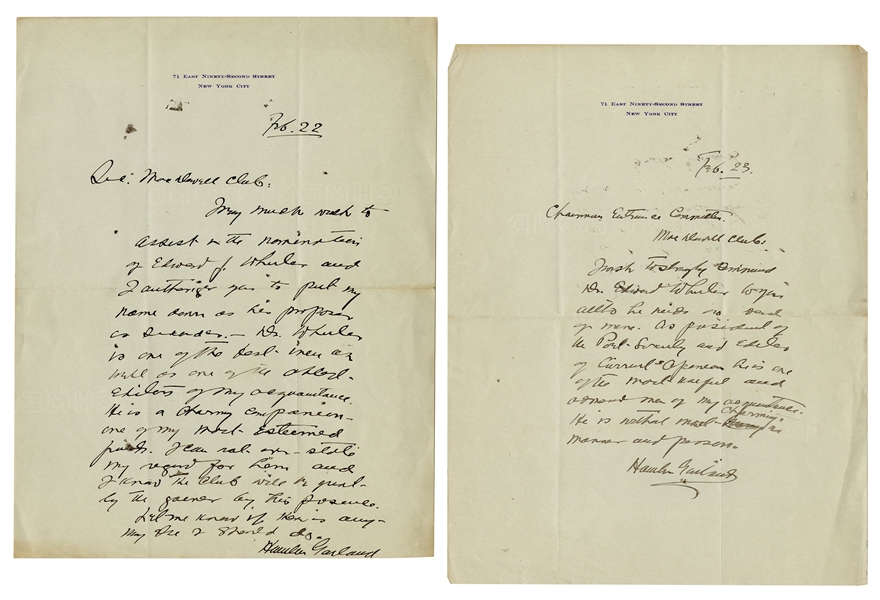 71 East Ninety-Second Street
New York City
Feb. 22
Sec. MacDowell Club:
I very much wish to
assist in the nomination
of Edward J. Wheeler and
I authorize you to put my
name down as his proposer
or seconder. – Dr. Wheeler
is one of the best men as
well as one of the ablest
Editors of my acquaintance.
He is a charming companion
one of my most esteemed
friends. I can not over-state
my regard for him and
I know the Club will be
by the gainer by his presence.
Let me know if there is any-
thing else I should do.
Hamlin Garland
71 East Ninety-Second Street
New York City
Feb. 23.
Chairman Entrance Committee.
MacDowell Club:
I wish to strongly commend
Dr. Edward Wheeler to you
altho he needs no word
of mine. As president of
the Poet- Society and Editor
of Current Opinion he is one
of the most useful and
men of my acquaintance.
He is withal most charming in
manner and person.
Hamlin Garland